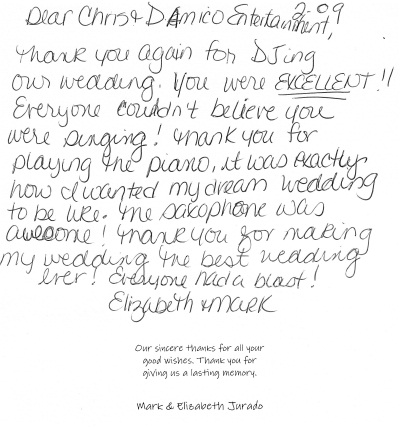 2.09
Dear Chris & D'Amico Entertainment,
Thank you again for DJing
our wedding. You were EXCELLENT!!
Everyone couldn't believe you
were singing! Thank you for
playing the piano, it was exactly
how I wanted my dream wedding
to be like. The saxophone was
awesome! Thank you for making
my wedding the best wedding
ever! Everyone had a blast!
Elizabeth & Mark
Our sincere thanks for all your
good wishes. Thank you for
giving us a lasting memory.
Mark & Elizabeth Jurado